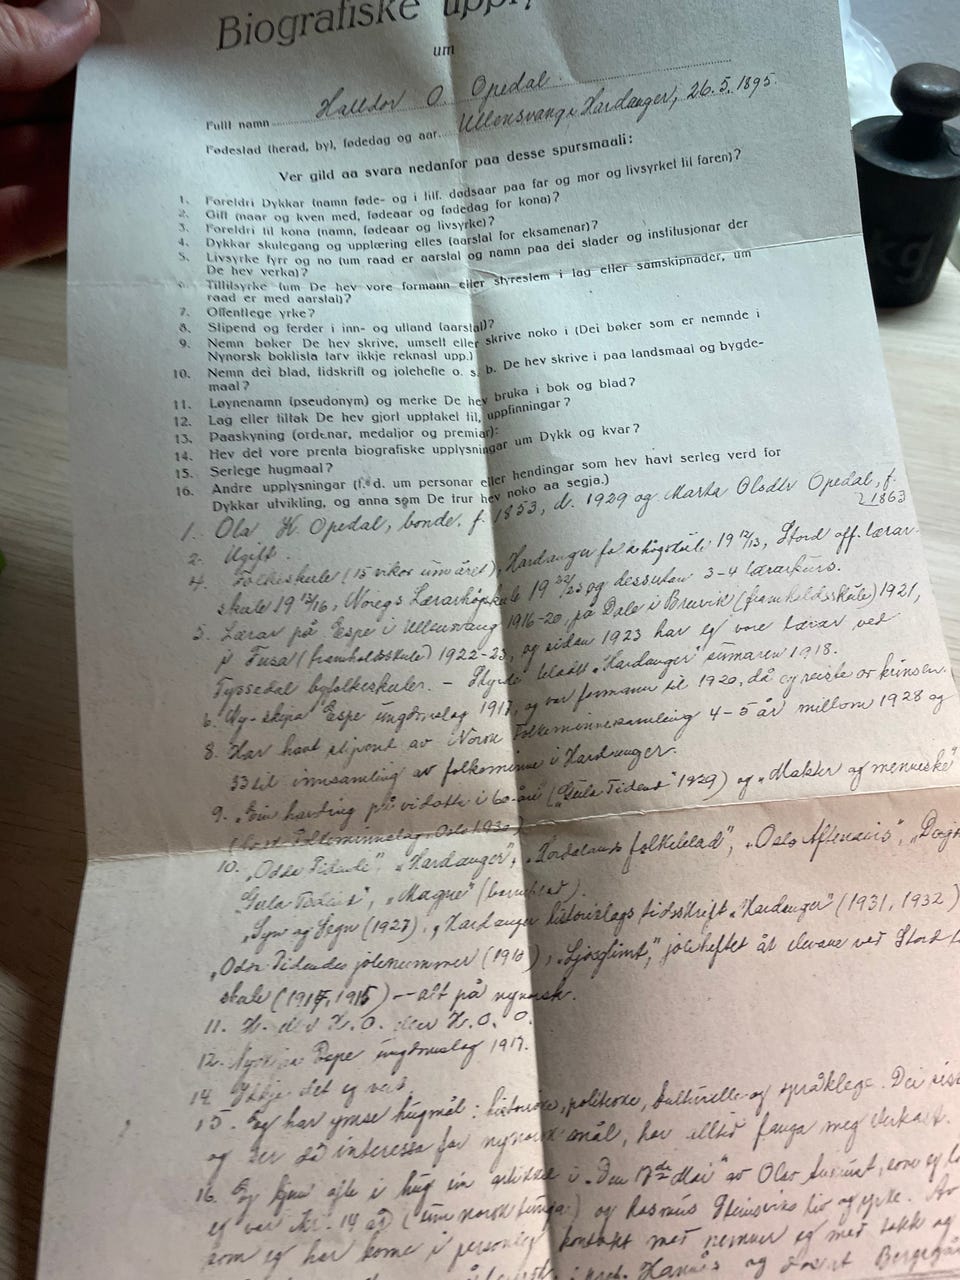 Biografiske
um
Fullt namn Halldor O. Opedal.
Fødestad (herad, by), fødedag og aar. Ullensvang i Hardanger, 26.5.1895.
Ver gild aa svara nedanfor paa desse spursmaali:
1. Foreldri Dykkar (namn føde- og i tilf. dødsaar paa far og mor og livsyrket til faren)?
2. Gift (naar og kven med, fødeaar og fødedag for kona)?
3. Foreldri til kona (namn, fødeaar og livsyrke)?
4. Dykkar skulegang og upplæring elles (aarstal for eksamenar)?
5. Livsyrke fyrr og no (um raad er aarstal og namn paa dei stader og institusjonar der
De hev verka)?
6. Tillitsyrke (um De hev vore formann eller styreslem i lag eller samskipnader, um
raad er med aarstal)?
7. Offentlege yrke?
8. Stipend og ferder i inn- og utland (aarstal)?
9. Nemn bøker De hev skrive, umsett eller skrive noko i (Dei bøker som er nemnde i
Nynorsk boklista tarv ikkje reknast upp.)
10. Nemn dei blad, tidskrift og jolehefte o. s. b. De hev skrive i paa landsmaal og bygde-
maal?
11. Løynenamn (pseudonym) og merke De hev bruka i bok og blad?
12. Lag eller tiltak De hev gjort upptaket til, uppfinningar?
13. Paaskyning (ordenar, medaljor og premiar):
14. Hev det vore prenta biografiske upplysningar um Dykk og kvar?
15. Serlege hugmaal?
16. Andre upplysningar (t. d. um personar eller hendingar som hev havt serleg verd for
Dykkar utvikling, og anna som De trur hev noko aa segja.)
1. Ola H. Opedal, bonde, f. 1853, d. 1929 og Marta Olsdtr Opedal, f.
1863
2. Ugift.
4. Folkeskule (15 vikor um året), Hardanger folkehøgskule 1912/13, Stord off. lærar-
skule 1913/16, Noregs Lærarhøgskule 1922/23 og dessutan 3-4 lærarkurs.
5. Lærar på Espe i Ullensvang 1916-20, på Dale i Bruvik (framhaldsskule) 1921,
i Fusa (framhaldsskule) 1922-23, og sidan 1923 har eg vore lærar ved
Tyssedal byfolkeskule. - Styrde bladet "Hardanger" sumaren 1918.
6. Ny-skipa Espe ungdomslag 1917, og var formann til 1920, då eg reiste or krinsen.
8. Har havt stipend av Norsk Folkeminnesamling 4-5 år millom 1928 og
33 til innsamling av folkeminne i Hardanger.
9. "Ein harding på vidotta i 60-åri ("Gula Tidend" 1929) og "Makter og menneske"
(Norsk Folkeminnelag, Oslo 1930)
10. "Odda Tidende", "Hardanger", "Hordaland folkeblad", "Oslo Aftenavis",
"Gula Tidend", "Magne" (barneblad).
"Syn og Segn (1927), "Hardanger historielags tidsskrift "Hardanger" (1931, 1932)
"Odda Tidendes jolenummer (1910), "Ljosglimt," joleheftet åt elevane ved Stord
skule (1914, 1915) — alt på nynorsk.
11. H. eller H. O. eller H. O. O.
12. Nyskipa Espe ungdomslag 1917.
14. Ikkje det eg veit.
15. Eg har ymse hugmål: historiske, politiske, kulturelle og språklege. Dei siste
og der då interessa for nynorsk mål, har alltid fanga meg sterkast.
16. Eg kjem ofte i hug ein artikkel i "Den 17de Mai" av Olav Aukrust, som eg
eg var kr. 14 år ("um norsk tunga") og Rasmus Steinsviks liv og yrke. Av
som eg har kome i personleg kontakt med nemner eg med takk og
Hannås og